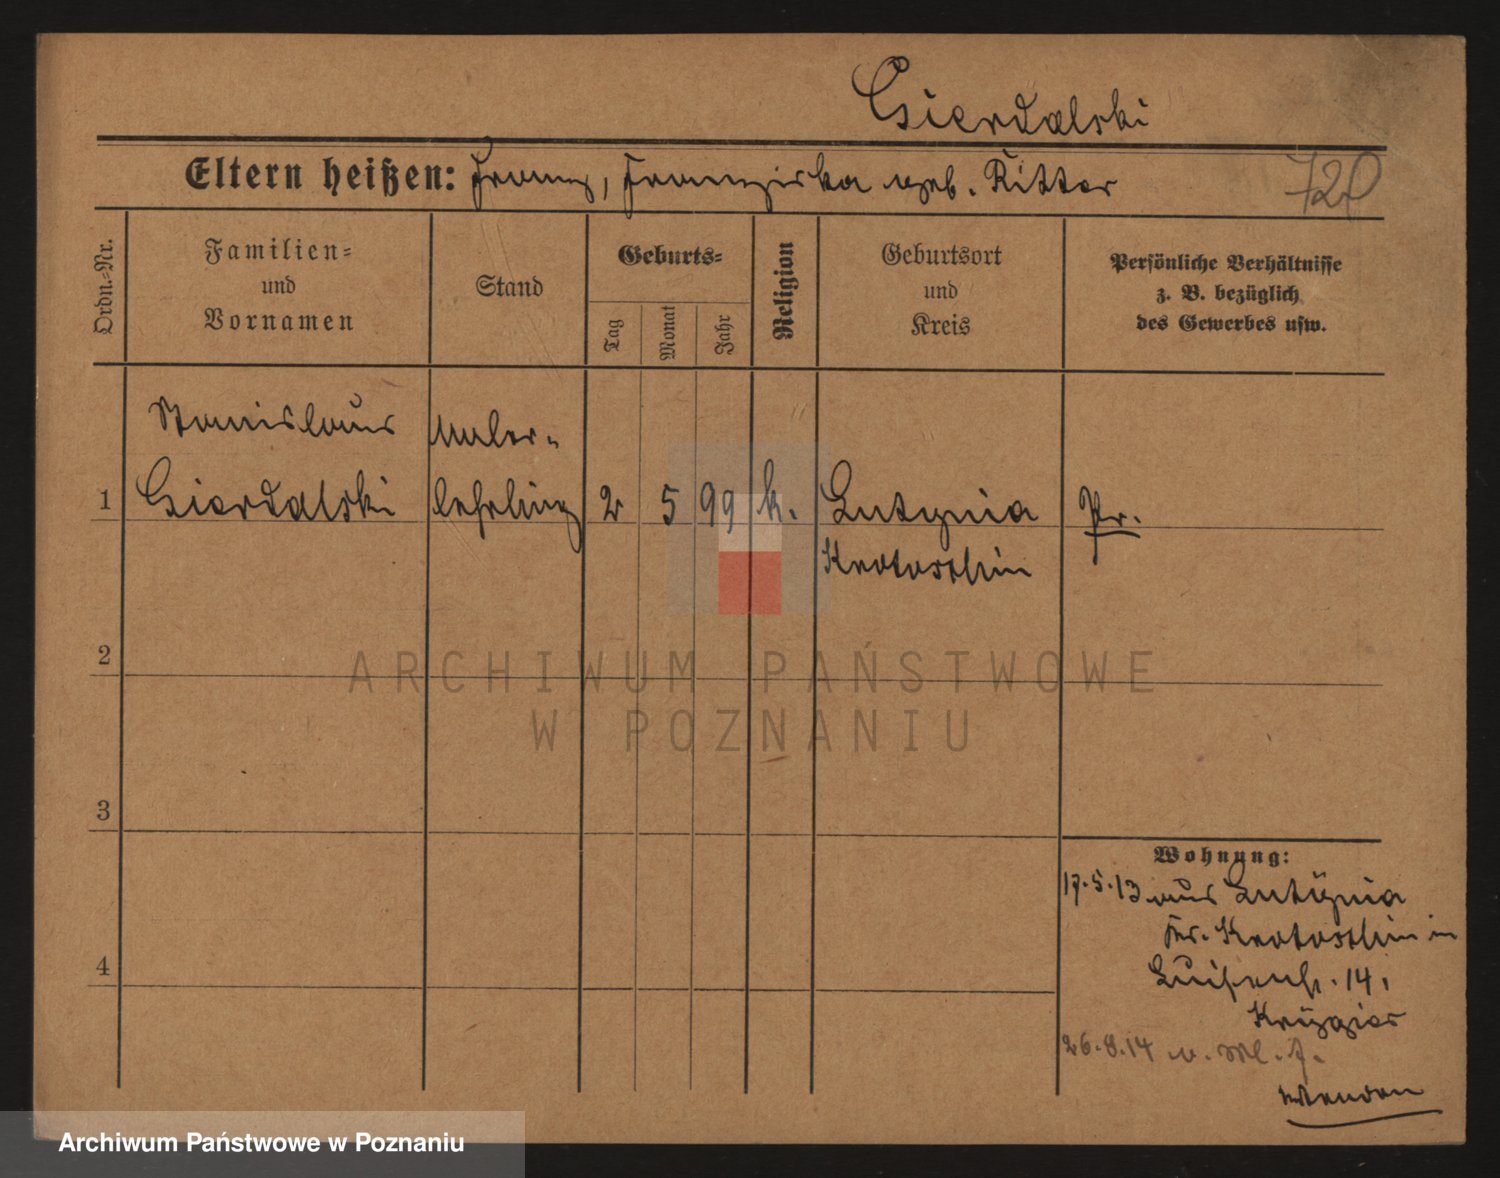 Czierdalski
Eltern heißen: Franz, Franziska geb. Ritter
Ordn.-Nr.
Familien-
und
Vornamen
Stand
Geburts-
Tag
Monat
Jahr
Religion
Geburtsort
und
Kreis
Persönliche Verhältnisse
z. B. bezüglich
des Gewerbes usw.
Stanislaus Maler-
1 lehrling 2 5 99 k. Lutynia Pr.
Krotoschin
2
ARCHIWUM PAŃSTWOWE
W POZNANIU
3
Wohnung:
17.5.13 aus Lutynia
Kr. Krotoschin in
4
Luisenstr. 14,
26.8.14
Archiwum Państwowe w Poznaniu